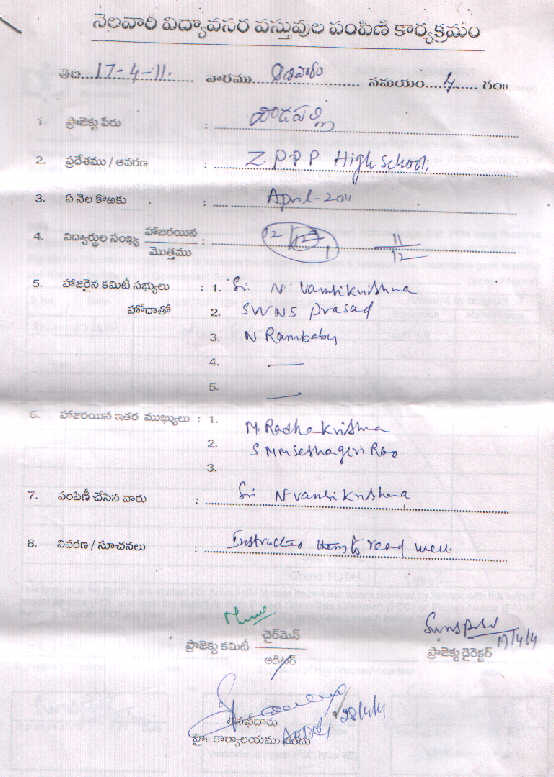 నెలవారి విద్యావసర వస్తువుల పంపిణి కార్యక్రమం
తేది...17-4-11. వారము ఆదివారం సమయం....4..... గం॥
1. ప్రాజెక్టు పేరు :
2. ప్రదేశము / ఆవరణ : ZPPP High School,
3. ఏ నెల కొఱకు : April-2011
4. విద్యార్థుల సంఖ్య హాజరయిన / మొత్తము : 12/12 11/12
5. హాజరైన కమిటీ సభ్యులు : 1. Sri N Vamsikrishna
హోదాతో 2. SWNS Prasad
3. N Rambabu
4. —
5. —
6. హాజరయిన ఇతర ముఖ్యులు : 1. M Radhakrishna
2. S M M Seshagiri Rao
3.
7. పంపిణీ చేసిన వారు : Sri N Vamsi Krishna
8. వివరణ / సూచనలు : Instructed them to read well
చైర్మెన్
ప్రాజెక్టు కమిటీ
ఆడిటర్
17/4/11
ప్రాజెక్టు డైరెక్టర్
కార్యాలయము